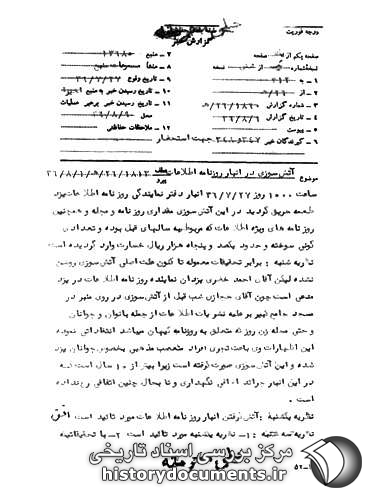 درجه فوریت
گزارش خبر
صفحه یکم از صفحه
نسخه شماره از نسخه
۱ ـ به ۳۱۲
۲ ـ از
۳ ـ شماره گزارش
۴ ـ تاریخ گزارش ۳۶/۸/۱
۵ ـ پیوست
۶ ـ گیرندگان خبر ۳۴۱ و ۳۴۸ جهت استحضار
۷ ـ منبع ۱۳۱۸۰
۸ ـ منشأ مسموعات منبع
۹ ـ تاریخ وقوع ۳۶/۷/۲۷
۱۰ ـ تاریخ رسیدن خبر به منبع اخیرا
۱۱ ـ تاریخ رسیدن خبر برهبر عملیات
۱۲ ـ ملاحظات حفاظتی
موضوع آتش سوزی در انبار روزنامه اطلاعات
ساعت ۱۰۰۰ روز ۳۶/۷/۲۷ انبار دفتر نمایندگی روزنامه اطلاعات یزد
طعمه حریق گردید در این آتش سوزی مقداری روزنامه و مجله و همچنین
روزنامه های ویژه اطلاعات که مربوط به سالهای قبل بوده و تعدادی
گونی سوخته و حدود یکصد و پنجاه هزار ریال خسارت وارد گردیده است
نظریه شنبه : برابر تحقیقات معموله تا کنون علت اصلی آتش سوزی روشن
نشده لیکن آقای احمد خضری یزدان نماینده روزنامه اطلاعات در یزد
مدعی است چون آقای حجازی شب قبل از آتش سوزی در روی منبر در
مسجد جامع کبیر بر علیه نشریات اطلاعات از جمله بانوان و جوانان
و حتی مجله زن روز که متعلق به روزنامه کیهان میباشد انتقاداتی نموده
این اظهارات وی باعث تجری افراد متعصب مذهبی بخصوص جوانان یزد
شده و این آتش سوزی صورت گرفته است زیرا بیش از ۱۰ سال است که
در این انبار جرائد اضافی نگهداری و تا بحال چنین اتفاقی رخ نداده
است .
نظریه یکشنبه : آتش گرفتن انبار روزنامه اطلاعات مورد تائید است افق
نظریه سه شنبه : ۱ـ نظریه یکشنبه مورد تائید است ۲ـ با تحقیقاتیکه
مرکز بررسی اسناد تاریخی
historydocuments.ir